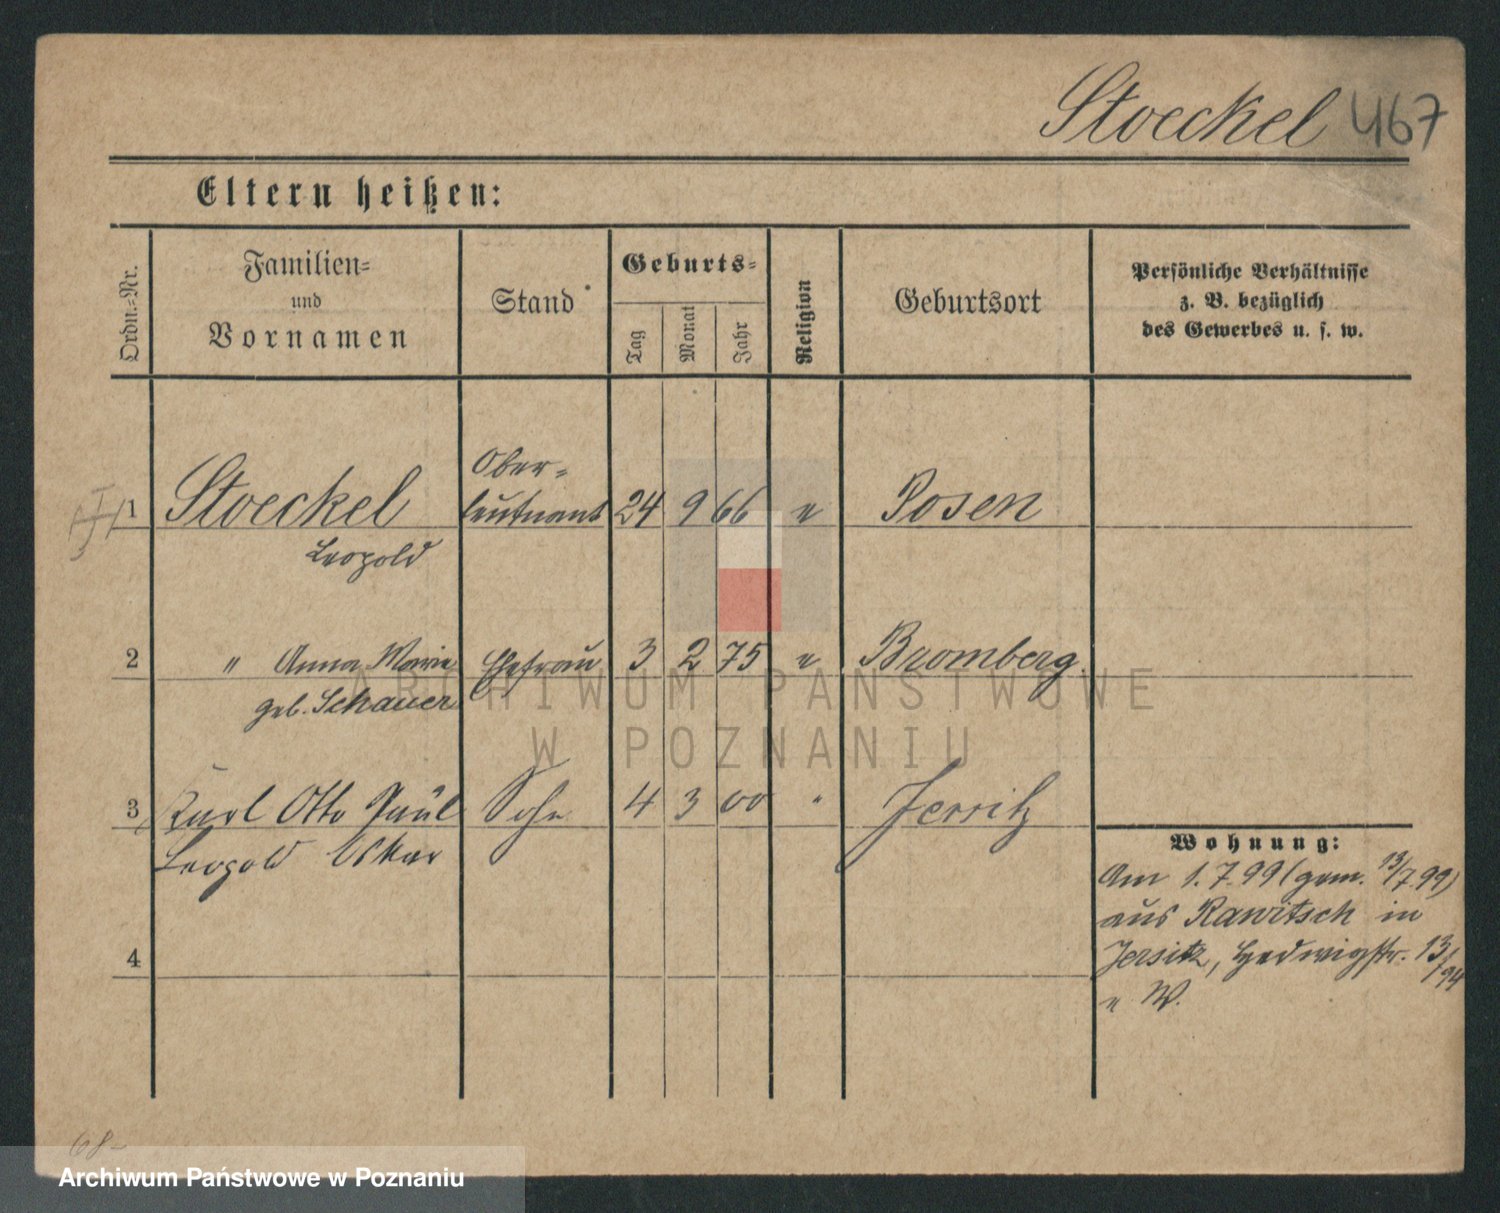 Stoeckel 467
Eltern heißen:
Ordn.-Nr.
Familien-
und
Vornamen
Stand
Geburts-
Tag
Monat
Jahr
Religion
Geburtsort
Persönliche Verhältnisse
z. B. bezüglich
des Gewerbes u. s. w.
Ober-
1 Stoeckel leutnant 24 9 66 e Posen
Leopold
2 " Anna Marie Ehefrau 3 2 75 e Bromberg
geb. Schauer
3 Karl Otto Paul Sohn 4 3 00 " Jersitz
Leopold Oskar
4
Wohnung:
Am 1.7.99 (gem. 13/7.99)
aus Rawitsch in
Jersitz, Hedwigstr. 13
/94
e W.
68-
ARCHIWUM PAŃSTWOWE
W POZNANIU
Archiwum Państwowe w Poznaniu